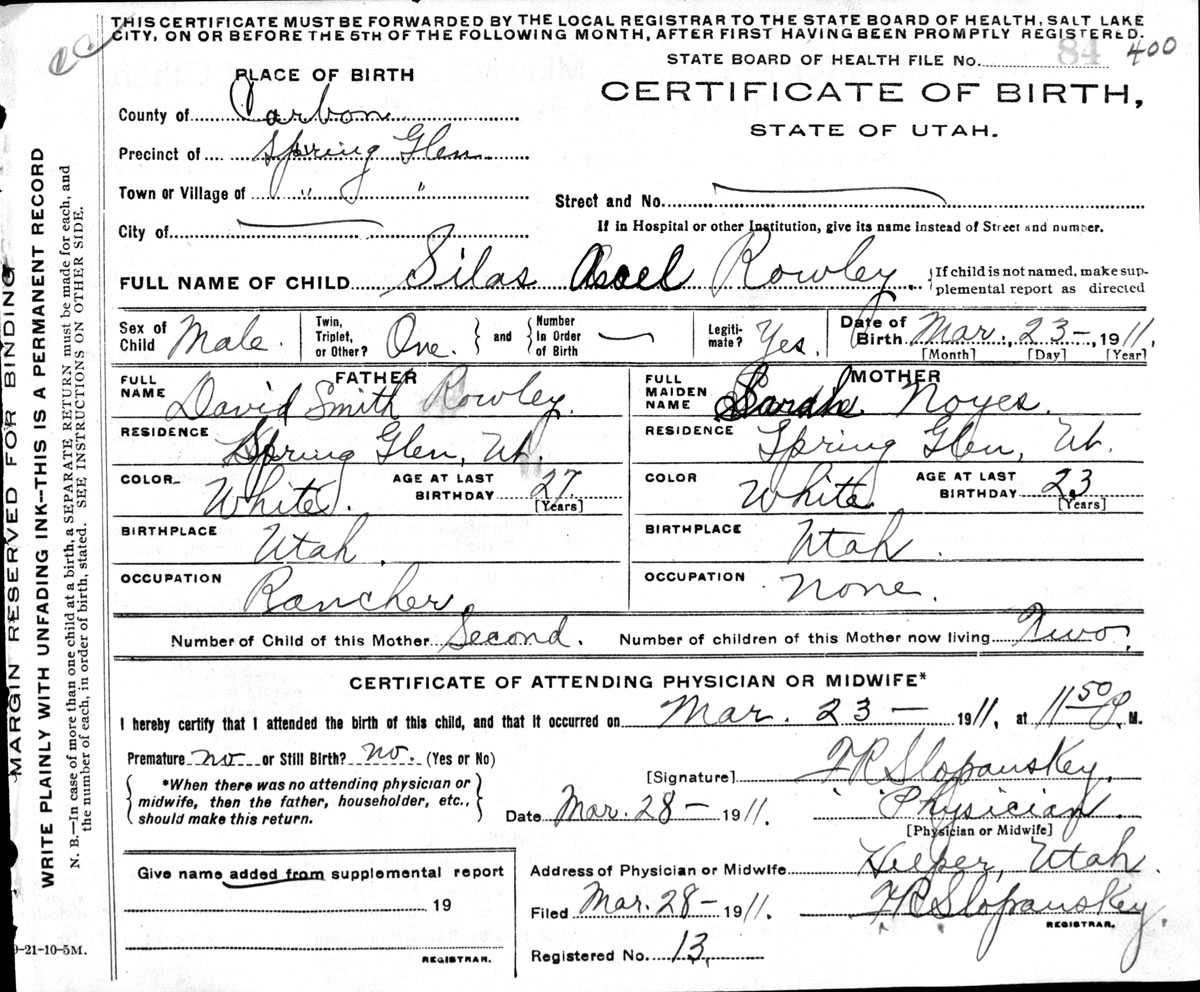 THIS CERTIFICATE MUST BE FORWARDED BY THE LOCAL REGISTRAR TO THE STATE BOARD OF HEALTH, SALT LAKE
CITY, ON OR BEFORE THE 5TH OF THE FOLLOWING MONTH, AFTER FIRST HAVING BEEN PROMPTLY REGISTERED.
STATE BOARD OF HEALTH FILE No. 84 400
PLACE OF BIRTH
CERTIFICATE OF BIRTH,
STATE OF UTAH.
County of Carbon
Precinct of Spring Glen
Town or Village of " "
Street and No.
City of
If in Hospital or other Institution, give its name instead of Street and number.
FULL NAME OF CHILD Silas Asael Rowley. {If child is not named, make sup-
plemental report as directed
Sex of Child Male. Twin, Triplet, or Other? One. and Number In Order of Birth — Legiti-mate? Yes. Date of Birth Mar. 23 - 1911.
[Month] [Day] [Year]
FATHER
FULL NAME David Smith Rowley.
RESIDENCE Spring Glen, Ut.
COLOR White. AGE AT LAST BIRTHDAY 27
[Years]
BIRTHPLACE Utah.
OCCUPATION Rancher
MOTHER
FULL MAIDEN NAME Sarah Noyes.
RESIDENCE Spring Glen, Ut.
COLOR White AGE AT LAST BIRTHDAY 23
[Years]
BIRTHPLACE Utah.
OCCUPATION None.
Number of Child of this Mother Second. Number of children of this Mother now living Two.
CERTIFICATE OF ATTENDING PHYSICIAN OR MIDWIFE*
I hereby certify that I attended the birth of this child, and that it occurred on Mar. 23 — 1911, at 11 50 P. M.
Premature no or Still Birth? no. (Yes or No)
*When there was no attending physician or
midwife, then the father, householder, etc.,
should make this return.
[Signature] F R Slopanskey.
Date Mar. 28 - 1911. Physician
[Physician or Midwife]
Give name added from supplemental report
19
REGISTRAR.
Address of Physician or Midwife Helper, Utah.
Filed Mar. 28 - 1911. F R Slopanskey.
REGISTRAR.
Registered No. 13.
9-21-10-5M.
MARGIN RESERVED FOR BINDING
WRITE PLAINLY WITH UNFADING INK--THIS IS A PERMANENT RECORD
N. B.—In case of more than one child at a birth a SEPARATE RETURN must be made for each, and
the number of each, in order of birth, stated. SEE INSTRUCTIONS ON OTHER SIDE.